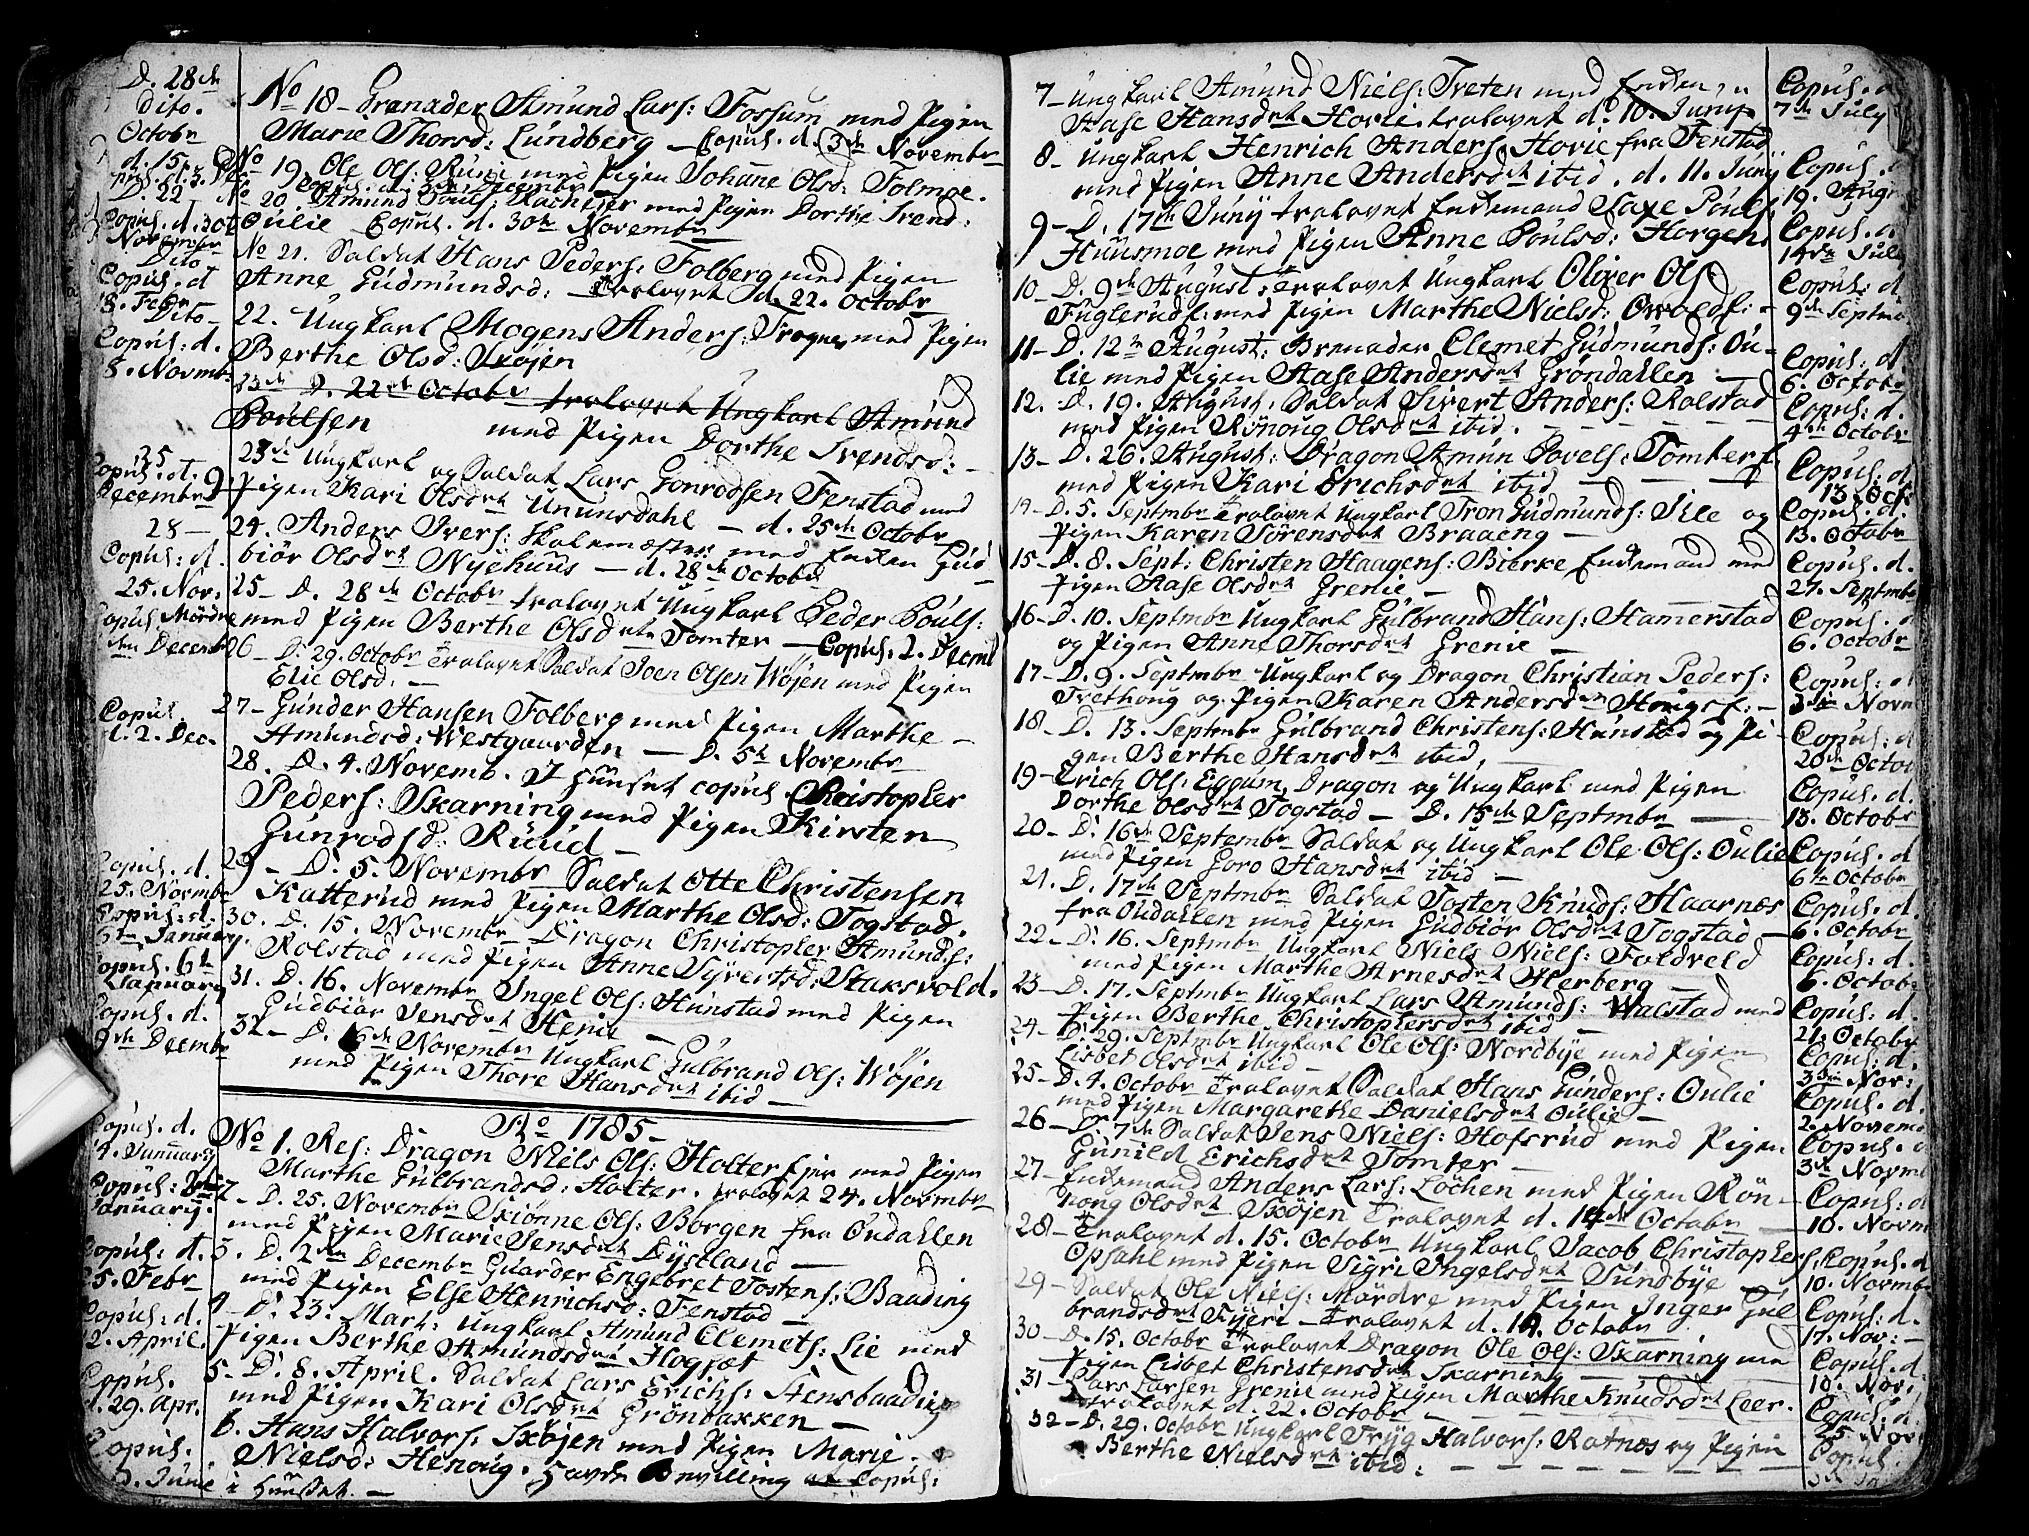 D. 28de
Dito.
Octobr
d. 15.
D. 22
Copul. d. 30t
Novembr
Dito
Copul. d
18. Febr
Dito
Copul: d.
8. Novmb:
25
Copul. d. 9
Decembr
28 —
Copul: d.
25. Nov:
Copul. Mördre
den Decemb
Copul.
d. 2. Dec.
Copul. d.
25. Novmbr
Copul: d.
6te January.
Copul. 6te
January
Copul. d.
9de Decembr
Copul. d.
4. January
Copul:
January.
Copul: d.
25. Febr
Copul: d.
12. April.
Copul.
d. 29. Apr.
Copul.
3. Junie
No 18 – Granader Amund Lars: Fossum med Pigen
Marie Thorsd: Lundberg – Copul. d. 3de Novembr
No 19. Ole Ols: Runi med Pigen Johanne Olsd: Tolmoe.
Copul. d. 3de Decembr
No 20. Amund Pouls: med Pigen Dorthe Svend:
Oulie Copul. d. 30te Novembr
No 21. Soldat Hans Peders: Folberg med Pigen
Anne Gudmundsd: Trolovet d. 22. Octobr
22. Ungkarl Mogens Anders: Frogner med Pigen
Berthe Olsd: Skøjen
23de D. 22de Octobr trolovet Ungkarl Amund
Poulsen med Pigen Dorthe Svendsd: –
23de Ungkarl og Soldat Lars Gonrodsen Fenstad med
Pigen Kari Olsdrt Ununsdahl – d. 25de Octobr
24. Anders Ivers: Skolemæster med Enken Gud–
biör Olsdrt Nyehuus – d. 28de Octobr
25 – D. 28de Octobr trolovet Ungkarl Peder Pouls:
med Pigen Berthe Olsdrtr Tomter – Copul: 2. Decmb
26 – D. 29. Octobr Trolovet Soldat Joen Olsen Wøjen med Pigen
Elie Olsd. –
27 – Gunder Hansen Folberg med Pigen Marthe –
Amundsd: Westgaarden – D. 5te Novembr
28. D. 4. Novemb. I Huuset copul. Christopher
Peders: Skarning med Pigen Kirsten
Gunrodsd: Ruud –
29 – D. 5. Novembr Soldat Otte Christensen
Katterud med Pigen Marthe Olsd: Togstad.
30. D. 15. Novembr Dragon Christopher Amunds:
Rolstad med Pigen Anne Syvertsd: Stansvold.
31. D. 16. Novembr Ingel Ols: Hunstad med Pigen
Gudbiør Jensdrt Henie –
32 – D. 6de Novembr Ungkarl Gulbrand Ols: Wøjen
med Pigen Thore Hansdrt ibid –
Ao 1785 –
No 1. Res: Dragon Niels Ols: Holter Ejer med Pigen
Marthe Gulbrandsd: Holter. trolovet 24. Novmbr
2 – D. 25. Novembr Skiönne Ols: Borgen fra Oudallen
med Pigen Marie Jensdrt Dystland –
3. D. 2den Decembr Guarder Engebret Tostens: Baading
med Pigen Else Henrichsd: Fenstad –
4 – D. 23. Mart: Ungkarl Amund Clemets: Lie med
Pigen Berthe Amundsdrt Hogset
5 – D. 8. April. Soldat Lars Erichs: Stensbaading
med Pigen Kari Olsdrt Grönbakken –
6. Hans Halvors: Skøjen med Pigen Marie
Nielsd: Henoug. havde Bevilling at Copul:
i Huuset. –
7 – Ungkarl Amund Niels: Treten med Enken
Aase Hansdrt Hovie. trolovet d. 10. Juny
8 – Ungkarl Henrich Anders: Hovie fra Fenstad
med Pigen Anne Andersdrt ibid. d. 11. Juny
9 – D. 17de Juny trolovet Enkemand Saxe Pouls:
Huusmoe med Pigen Anne Poulsd: Horgen
10 – D. 9de August: Trolovet Ungkarl Oliver Ols:
Fuglerud E: med Pigen Marthe Nielsd: Owold E: –
11 – D. 12te August: Grenader Clemet Gudmunds: Ou–
lie med Pigen Aase Andersdrt Gröndallen –
12. D. 19. August: Soldat Sivert Anders: Rolstad
med Pigen Rönoug Olsdrt ibid. – – – –
13 – D. 26. August: Dragon Amun Povels: Tomter E.
med Pigen Kari Erichsdrt ibid – – –
14 – D. 5. Septmbr Trolovet Ungkarl Tron Gudmunds: Sile og
Pigen Karen Sörensdrt Braaeng –
15 – D. 8. Sept: Christen Haagens: Bierke Enkemand med
Pigen Aase Olsdrt Grenie –
16 – D. 10. Septmbr Ungkarl Gulbrand Hans: Hamerstad
og Pigen Anne Thorsdrt Grenie –
17 – D. 9. Septmbr Ungkarl og Dragon Christian Peders:
Trethoug og Pigen Karen Andersdr –
18 – D. 13. Septmbr Gulbrand Christens: Hunstad og Pi–
gen Berthe Hansdrt ibid,
19 – Erich Ols: Eggum, Dragon og Ungkarl med Pigen
Dorthe Olsdrt Togstad – D. 15de Septmbr –
20 – D. 16de Septembr Soldat og Ungkarl Ole Ols: Oulie
med Pigen Goro Hansdrt ibid –
21. D. 17de Septmbr Soldat Tosten Knuds: Haarnæs
fra Oudallen med Pigen Gudbiör Olsdrt Togstad –
22 – D. 16. Septmbr Ungkarl Niels Niels: Foldveld
med Pigen Marthe Arnesdrt Herberg –
23 – D. 17. Septmbr Ungkarl Lars Amunds: Walstad med
Pigen Berthe Christophersdrt ibid –
24 – D. 29. Septmbr Ungkarl Ole Ols: Nordbye med Pigen
Lisbet Olsdrt ibid –
25 – D. 4. Octobr Trolovet Soldat Hans Gunders: Oulie
med Pigen Margarethe Danielsdrt Oulie –
26 – D. 7de Soldat Jens Niels: Hofsrud med Pigen
Gunild Erichsdrt Tomter –
27 – Enkemand Anders Lars: Löchen med Pigen Rön–
noug Olsdrt Skøjen Trolovet d. 14de Octobr –
28 – Trolovet d. 15. Octobr Ungkarl Jacob Christophers:
Opsahl med Pigen Sigri Ingelsdrt Sundbye –
29 – Soldat Ole Niels: Mördre med Pigen Inger Gul
brandsdrt Fyeri – Trolovet d. 14. Octobr
30 – D. 15. Octobr Trolovet Dragon Ole Ols: Skarning me
Pigen Lisbet Christensdrt Skarning –
31 – Lars Larsen Grenie med Pigen Marthe Knudsdrt Leer.
Trolovet d. 22. Octobr – – –
32 – D. 29. Octobr Ungkarl Tryg Halvors: Rotnæs og Pigen
Berthe Nielsdrt ibid: – – – – –
Copul. d
7de July
Copul. d
19. Augu
Copul. d
14de July
Copul: d.
9de Septmb
Copul: d.
6. Octobr
Copul: d.
4de Octobr
Copul: d
13. Oct:
Copul: d.
13. Octobr
Copul. d.
27. Septmbr
Copul. d
6. Octobr
Copul: d
3die Novm
Copul: d
20de Octob
Copul. d.
13. Octobr
Copul. d
6te Octobr
Copul. d.
6. Octobr
Copul. d.
6. Octob:
Copul. d.
21. Octobr
Copul: d.
3die Nov:
Copul. d.
2. Novemb
Copul. d
3de Novm
Copul: d
10. Novm
Copul. d
10. Novmbr
Copul: d.
17. Nov: –
Copul: d.
10. Nov.
Copul: d.
25. Nov:
Copul: